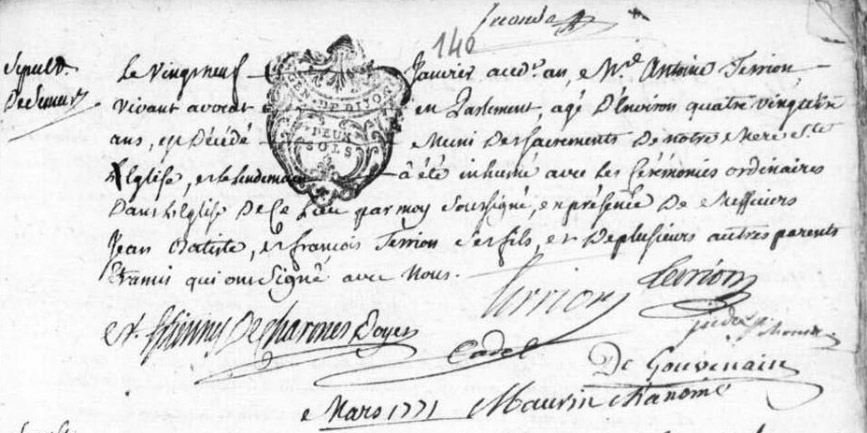 seconde
140
Sépult.
De Semur
Le vingt neuf Janvier au d. an, M.re Antoine Terrion
vivant avocat en Parlement, agé D'Environ quatre vingt un
ans, est Décédé Muni Des sacrements De notre Mere Ste
Eglise, et le lendemain a été inhumé avec les Cérémonies ordinaires
Dans l'Eglise De Ce Lieu par moy soussigné, en présence De Messieurs
Jean Batiste, et françois Terrion ses fils, et De plusieurs autres parents
Et amis qui ont signé avec Nous.
GEN. DE DIJON
DEUX
SOLS
Terrion Terrion
Descharmes Doyen
Cadel
De Gouvenain
Mars 1771 Maurin chanoine